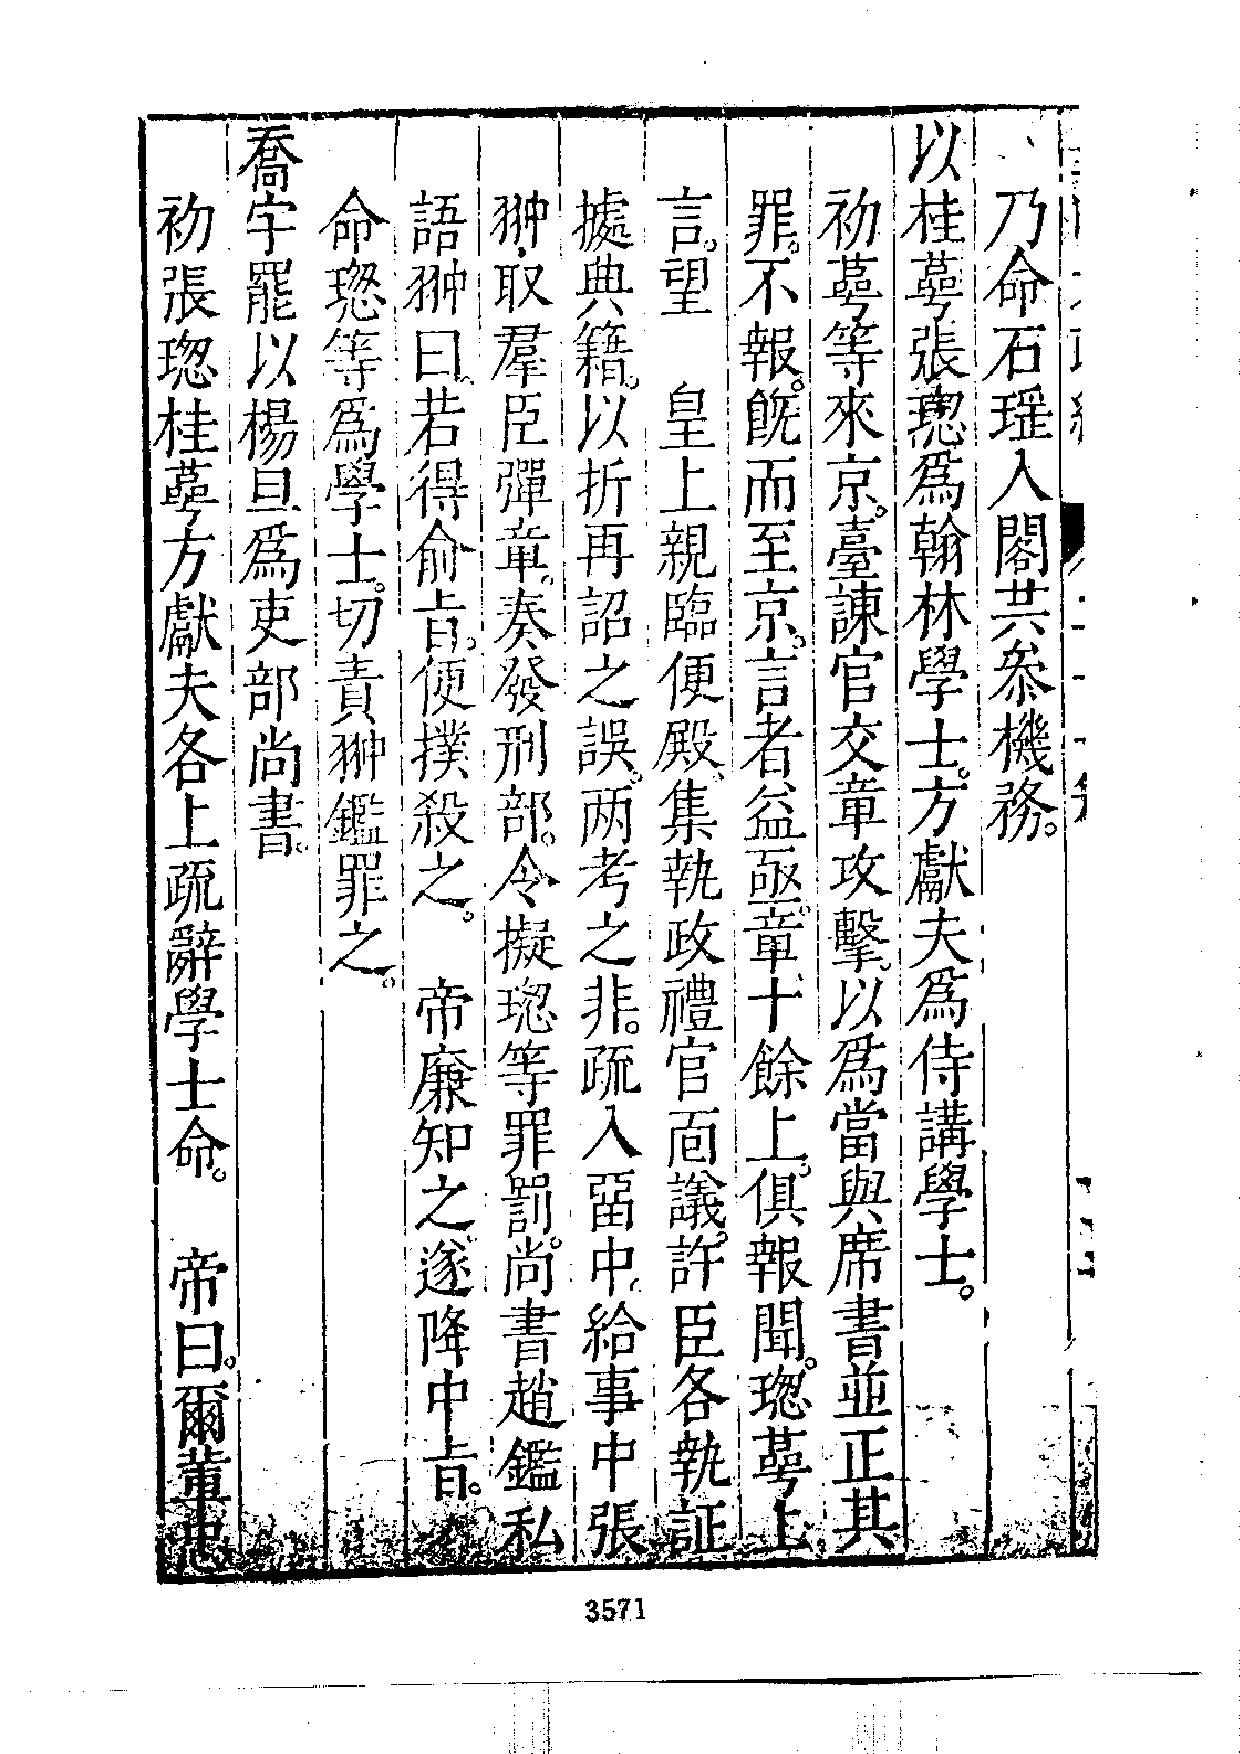 乃命石瑶入閣共叅機務。
以桂蕚張璁爲翰林學士。方獻夫爲侍講學士。
初蕚等來京。臺諫官交章攻擊。以爲當與席書並正其
罪。不報。旣而至京。言者益亟。章十餘上。俱報聞。璁蕚上
言。望 皇上親臨便殿。集執政禮官面議。許臣各執証
據典籍。以折再詔之誤。兩考之非。疏入畱中。給事中張
翀取羣臣彈章。奏發刑部。令擬璁等罪罰。尚書趙鑑私
語翀曰。若得俞旨。便撲殺之。 帝廉知之。遂降中旨。
命璁等爲學士。切責翀鑑罪之。
喬宇罷以楊旦爲吏部尚書。
初張璁桂蕚方獻夫各上疏辭學士命。 帝曰。爾輩忠
3571